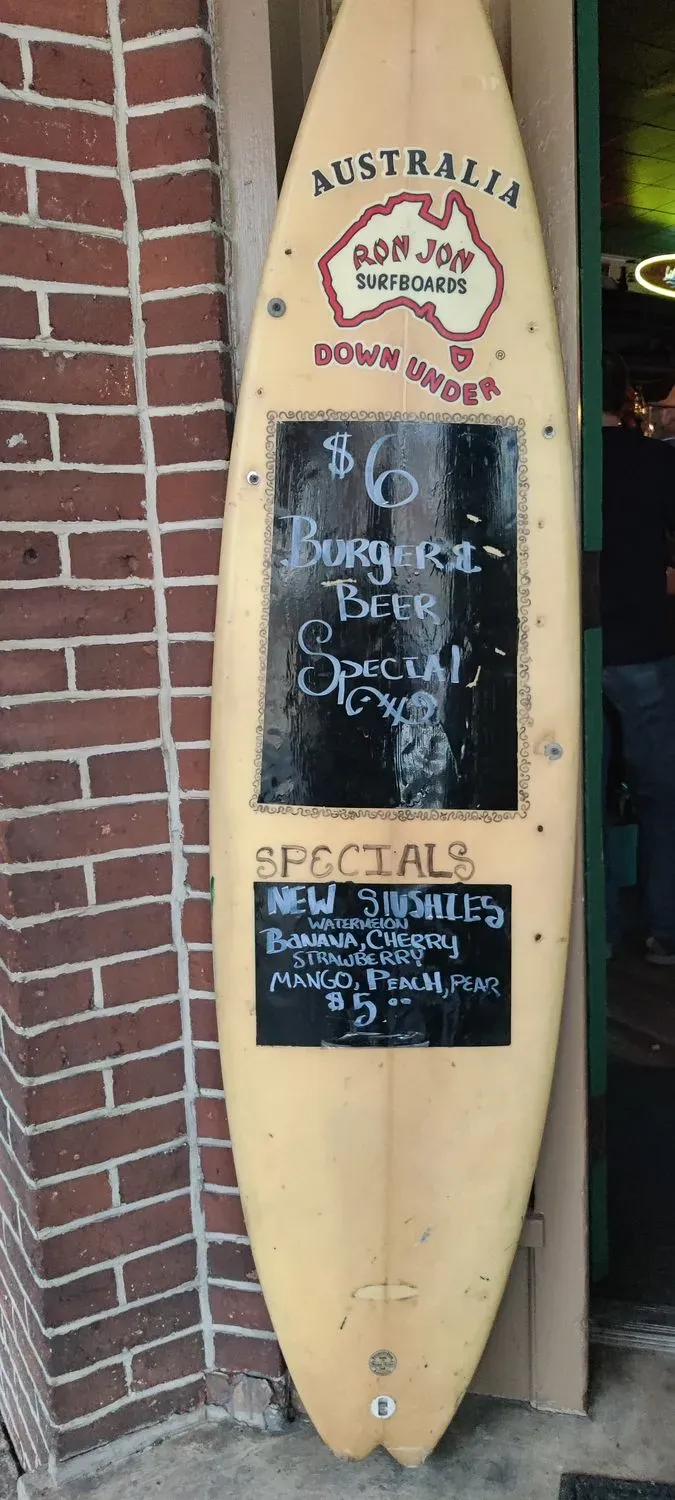 AUSTRALIA
RON JON
SURFBOARDS
DOWN UNDER
®
$6
BURGER &
BEER
SPECIAL
SPECIALS
NEW SLUSHIES
WATERMELON
BANANA, CHERRY
STRAWBERRY
MANGO, PEACH, PEAR
$5.00